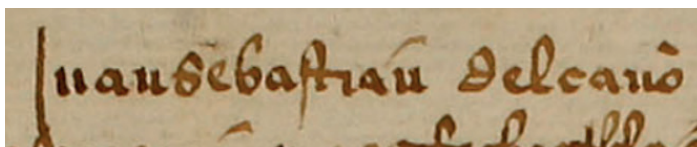 Juan sebastian delcano